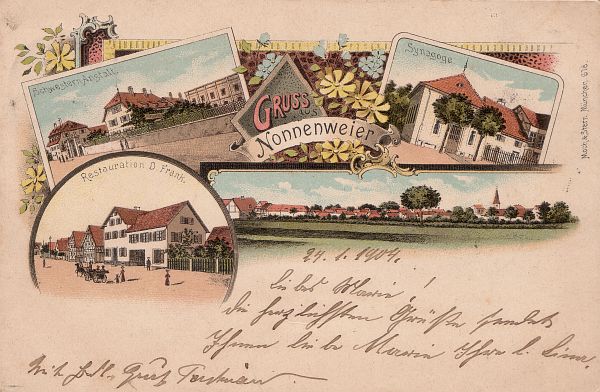 Schwestern-Anstalt.
Synagoge
GRUSS
aus
Nonnenweier
Restauration D. Frank.
29. 1. 1904.
Liebes Marie!
die herzlichsten Grüße sendet
Ihnen liebe Marie Ihre l.
Mit Gruß